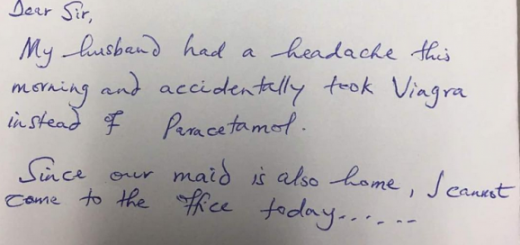 Dear Sir,
My husband had a headache this
morning and accidentally took Viagra
instead of Paracetamol.
Since our maid is also home, I cannot
come to the office today......